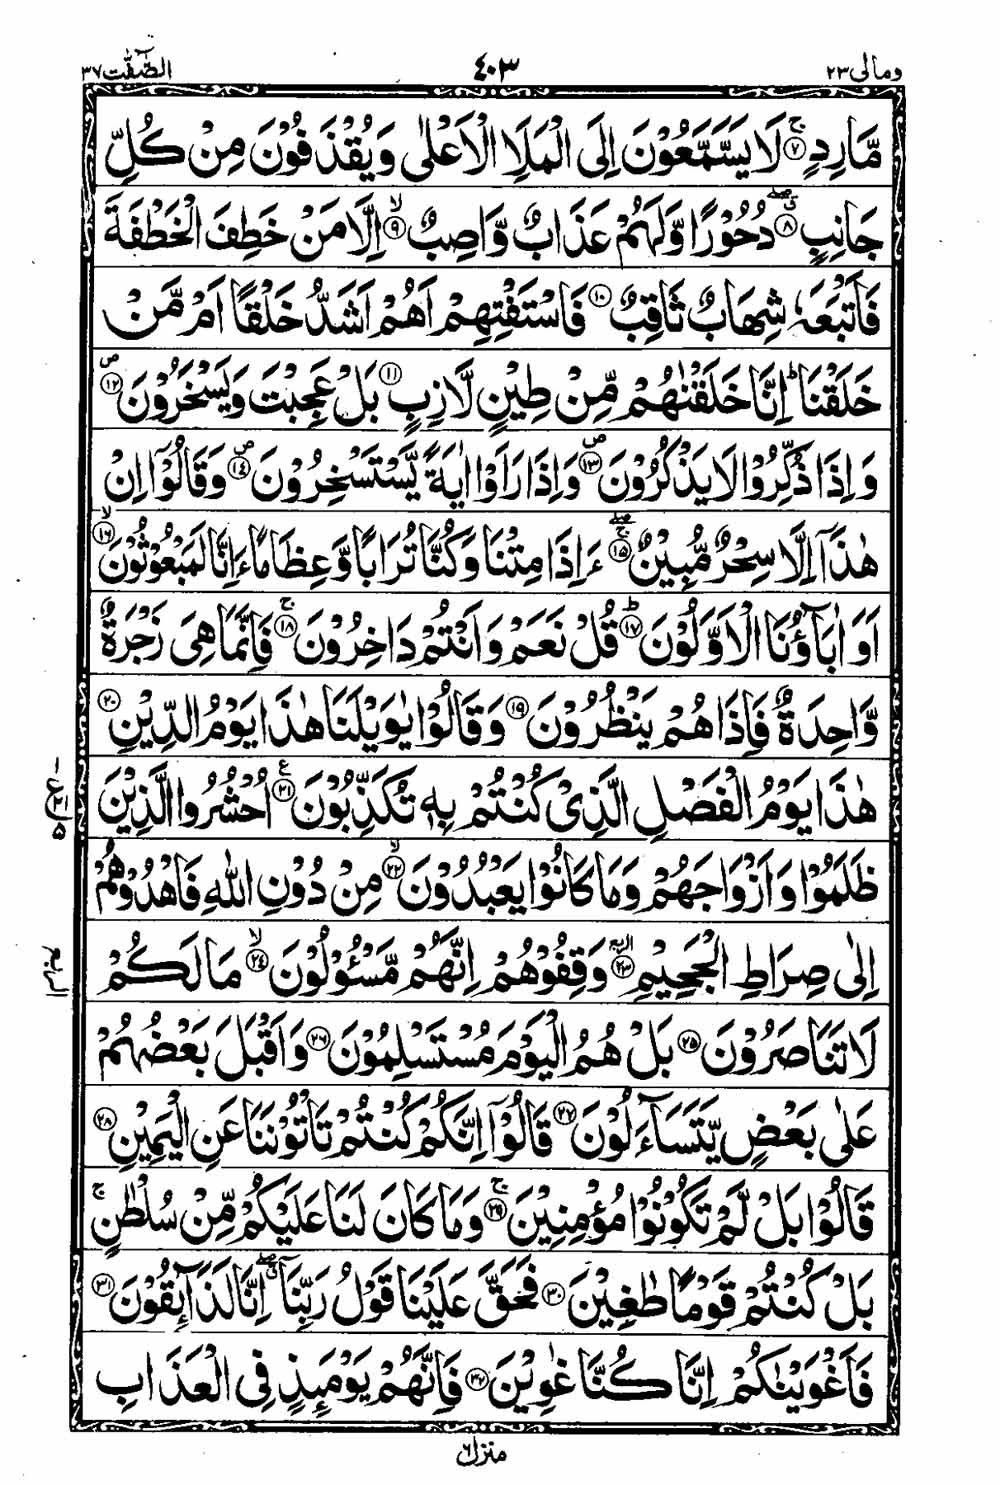 ومالی ٢٣ ٤٠٣ الصّٰٓفّٰت ٣٧
مَّارِدٍ ۚ‏﴿٧﴾ لَا يَسَّمَّعُوْنَ اِلَى الْمَلَاِ الْاَعْلٰى وَيُقْذَفُوْنَ مِنْ كُلِّ
جَانِبٍ ۖۗ‏﴿٨﴾ دُحُوْرًا وَّلَهُمْ عَذَابٌ وَّاصِبٌ ۙ‏﴿٩﴾ اِلَّا مَنْ خَطِفَ الْخَطْفَةَ
فَاَتْبَعَهٗ شِهَابٌ ثَاقِبٌ ﴿١٠﴾ فَاسْتَفْتِهِمْ اَهُمْ اَشَدُّ خَلْقًا اَمْ مَّنْ
خَلَقْنَا ؕ اِنَّا خَلَقْنٰهُمْ مِّنْ طِيْنٍ لَّازِبٍ ﴿١١﴾ بَلْ عَجِبْتَ وَيَسْخَرُوْنَ ﴿١٢﴾ ص
وَاِذَا ذُكِّرُوْا لَا يَذْكُرُوْنَ ﴿١٣﴾ ص وَاِذَا رَاَوْا اٰيَةً يَّسْتَسْخِرُوْنَ ﴿١٤﴾ ص وَقَالُوْۤا اِنْ
هٰذَاۤ اِلَّا سِحْرٌ مُّبِيْنٌ ۖۚ‏﴿١٥﴾ ءَاِذَا مِتْنَا وَكُنَّا تُرَابًا وَّعِظَامًا ءَاِنَّا لَمَبْعُوْثُوْنَ ۙ‏﴿١٦﴾
اَوَاٰبَآؤُنَا الْاَوَّلُوْنَ ؕ‏﴿١٧﴾ قُلْ نَعَمْ وَاَنْتُمْ دَاخِرُوْنَ ۚ‏﴿١٨﴾ فَاِنَّمَا هِىَ زَجْرَةٌ
وَّاحِدَةٌ فَاِذَا هُمْ يَنْظُرُوْنَ ﴿١٩﴾ وَقَالُوْا يٰوَيْلَنَا هٰذَا يَوْمُ الدِّيْنِ ﴿٢٠﴾
هٰذَا يَوْمُ الْفَصْلِ الَّذِىْ كُنْتُمْ بِهٖ تُكَذِّبُوْنَ ﴿٢١﴾ ع اُحْشُرُوا الَّذِيْنَ
ظَلَمُوْا وَاَزْوَاجَهُمْ وَمَا كَانُوْا يَعْبُدُوْنَ ۙ‏﴿٢٢﴾ مِنْ دُوْنِ اللّٰهِ فَاهْدُوْهُمْ
اِلٰى صِرَاطِ الْجَحِيْمِ ﴿٢٣﴾ وَقِفُوْهُمْ اِنَّهُمْ مَّسْـُٔوْلُوْنَ ۙ‏﴿٢٤﴾ مَا لَكُمْ
الربع
لَا تَنَاصَرُوْنَ ﴿٢٥﴾ بَلْ هُمُ الْيَوْمَ مُسْتَسْلِمُوْنَ ﴿٢٦﴾ وَاَقْبَلَ بَعْضُهُمْ
عَلٰى بَعْضٍ يَّتَسَآءَلُوْنَ ﴿٢٧﴾ قَالُوْۤا اِنَّكُمْ كُنْتُمْ تَاْتُوْنَنَا عَنِ الْيَمِيْنِ ﴿٢٨﴾
قَالُوْا بَلْ لَّمْ تَكُوْنُوْا مُؤْمِنِيْنَ ۚ‏﴿٢٩﴾ وَمَا كَانَ لَنَا عَلَيْكُمْ مِّنْ سُلْطٰنٍ ۚ
بَلْ كُنْتُمْ قَوْمًا طٰغِيْنَ ﴿٣٠﴾ فَحَقَّ عَلَيْنَا قَوْلُ رَبِّنَاۤ ۖۗ اِنَّا لَذَآئِقُوْنَ ﴿٣١﴾
فَاَغْوَيْنٰكُمْ اِنَّا كُنَّا غٰوِيْنَ ﴿٣٢﴾ فَاِنَّهُمْ يَوْمَئِذٍ فِى الْعَذَابِ
منزل ٦